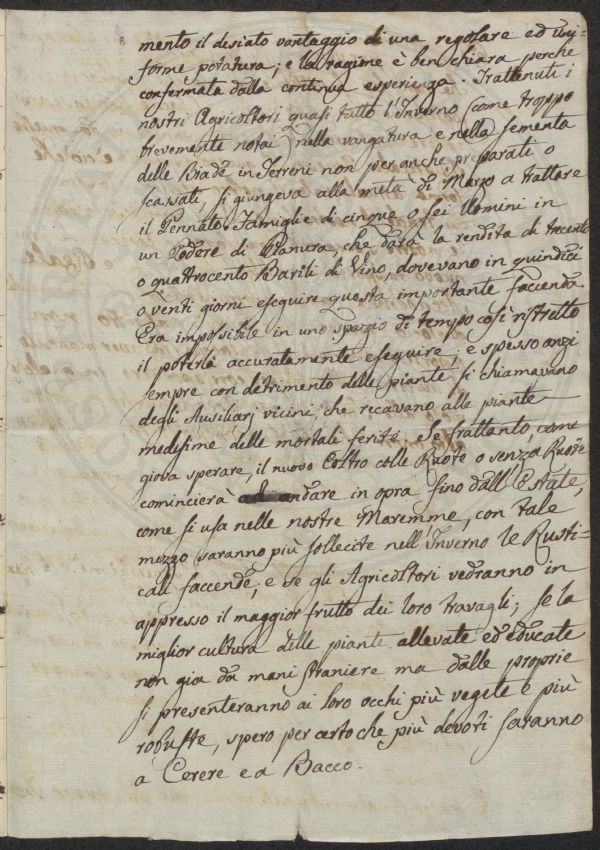 mento il desiato vantaggio di una regolare ed uny=
forme potatura; e la ragione è ben chiara perche
confermata dalla continua esperienza. Trattenuti i
nostri Agricoltori quasi tutto l'Inverno (come troppo
brevemente notai) nella vangatura e nella sementa
delle Biade in Terreni non per anche preparati o
scassati, si giungeva alla metà di Marzo a trattare
il Pennato. Famiglie di cinque o sei Uomini in
un Podere di Pianura, che darà la rendita di trecento
o quattrocento Barili di Vino, dovevano in quindici
o venti giorni eseguire questa importante faccenda.
Era impossibile in uno spazio di tempo così ristretto
il poterla accuratamente eseguire, e spesso anzi
sempre con detrimento delle piante si chiamavano
degli Ausiliarj vicini, che recavano alle piante
medesime delle mortali ferite. Se frattanto, come
giova sperare, il nuovo Coltro colle Ruote o senza Ruote
comincierà ad andare in opra fino dall'Estate,
come si usa nelle nostre Maremme, con tale
mezzo saranno più sollecite nell'Inverno le Rusti=
cali faccende, e se gli Agricoltori vedranno in
appresso il maggior frutto dei loro travagli; se la
miglior cultura delle piante allevate ed educate
non già da mani straniere ma dalle proprie
si presenteranno ai loro occhi più vegete e più
robuste, spero per certo che più devoti saranno
a Cerere e a Bacco.